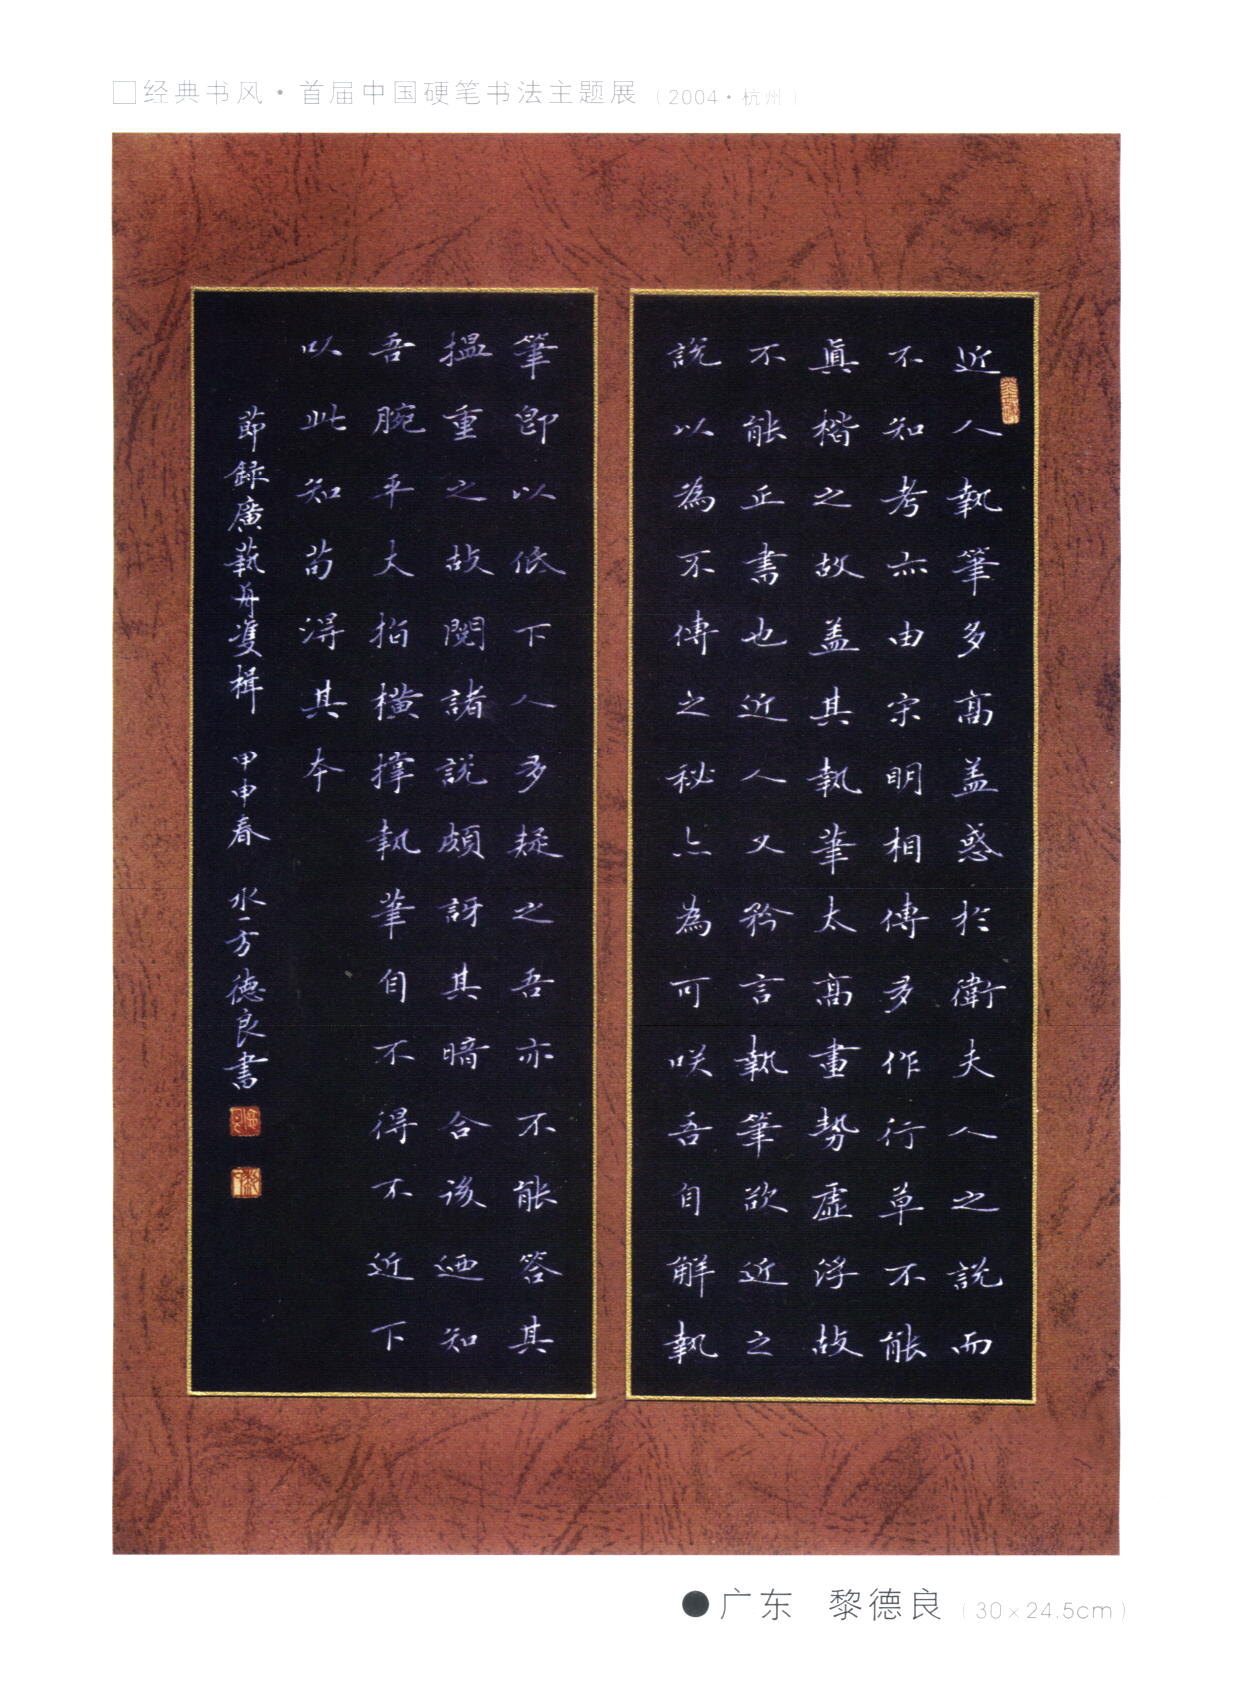 □经典书风·首届中国硬笔书法主题展（2004·杭州）
近人執筆多高盖惑於衛夫人之說而
不知考亦由宋明相傳多作行草不能
真楷之故盖其執筆太高畫勢虛浮故
不能正書也近人又矜言執筆欲近之
說以為不傳之秘亦為可咲吾自解執
筆即以低下人多疑之吾亦不能答其
揾重之故閱諸說頗訝其暗合後迺知
吾腕平大指橫撑執筆自不得不近下
以此知苟得其本
節録廣藝舟雙楫 甲申春 水一方德良書
●广东 黎德良（30×24.5cm）